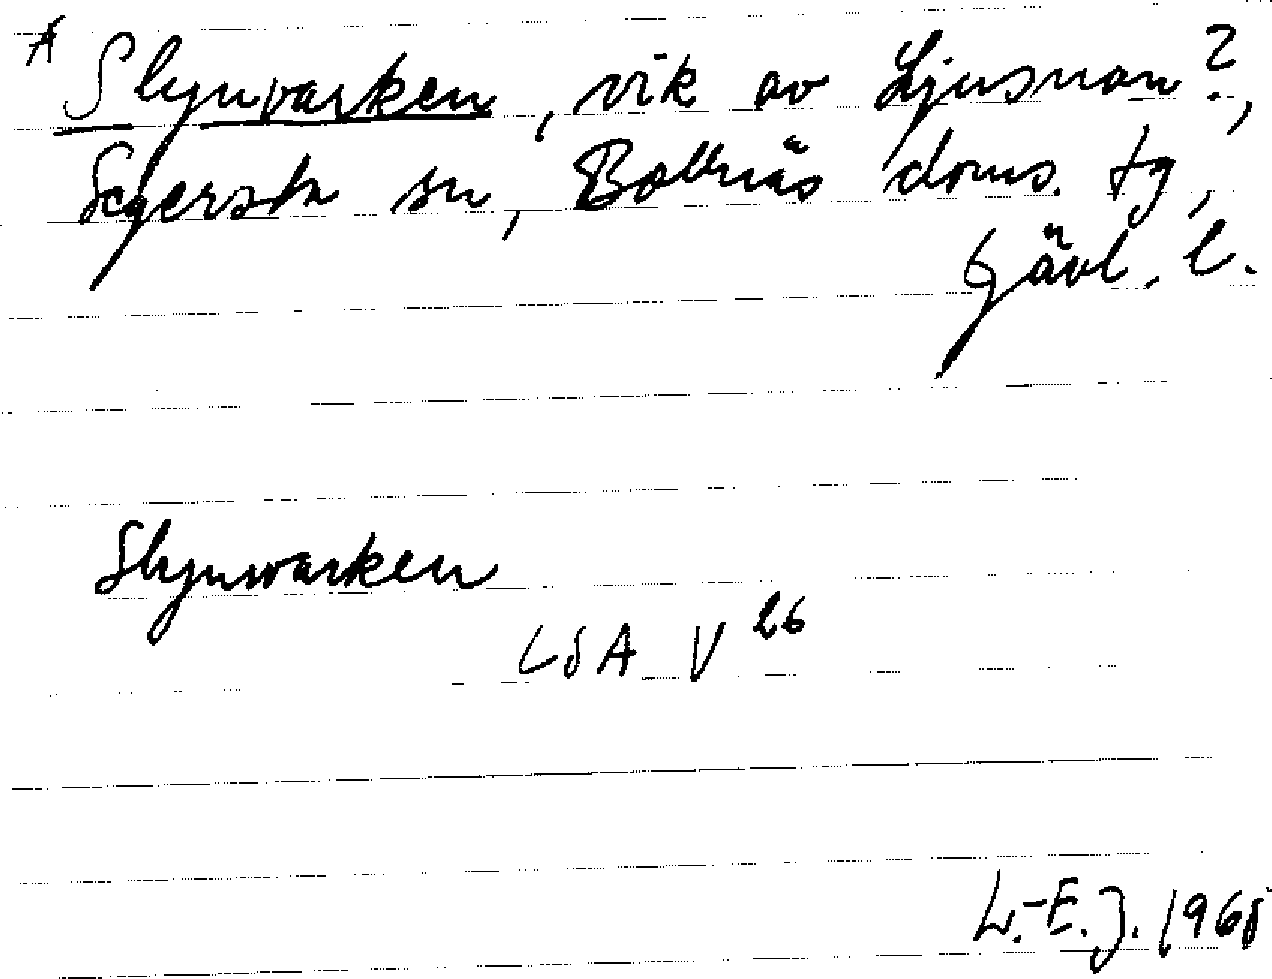 A Slynvarken, vik av Ljusnan?,
Segersta sn, Bollnäs doms. tg,
Gävl. l.
Slynvarken
LSA V 26
L.-E. J. 1968